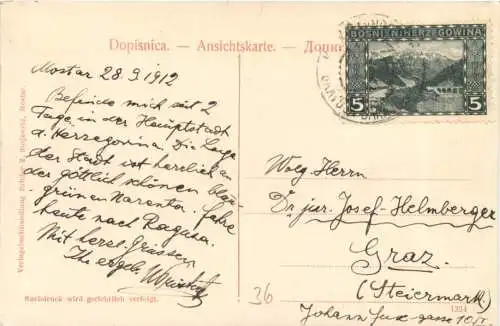 Dopisnica. — Ansichtskarte. —
BOSNIEN-HERZEGOWINA
5 5
Mostar 28.9.1912
Befinde mich seit 2
Tage in der Hauptstadt
d. Herzegovina. Die Lage
der Stadt ist herrlich an
der göttlich schönen blau-
grünen Narenta. Fahre
heute nach Ragusa.
Mit herzl. Grüssen
Ihr ergeb.
Wolg Herrn
Dr jur. Josef Helmberger
Graz
(Steiermark)
Johann Fux gasse 10
36
1324
Nachdruck wird gerichtlich verfolgt.
Verlagsbuchhandlung